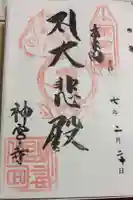 奉拝
七年二月二十日
大悲殿
神宮寺